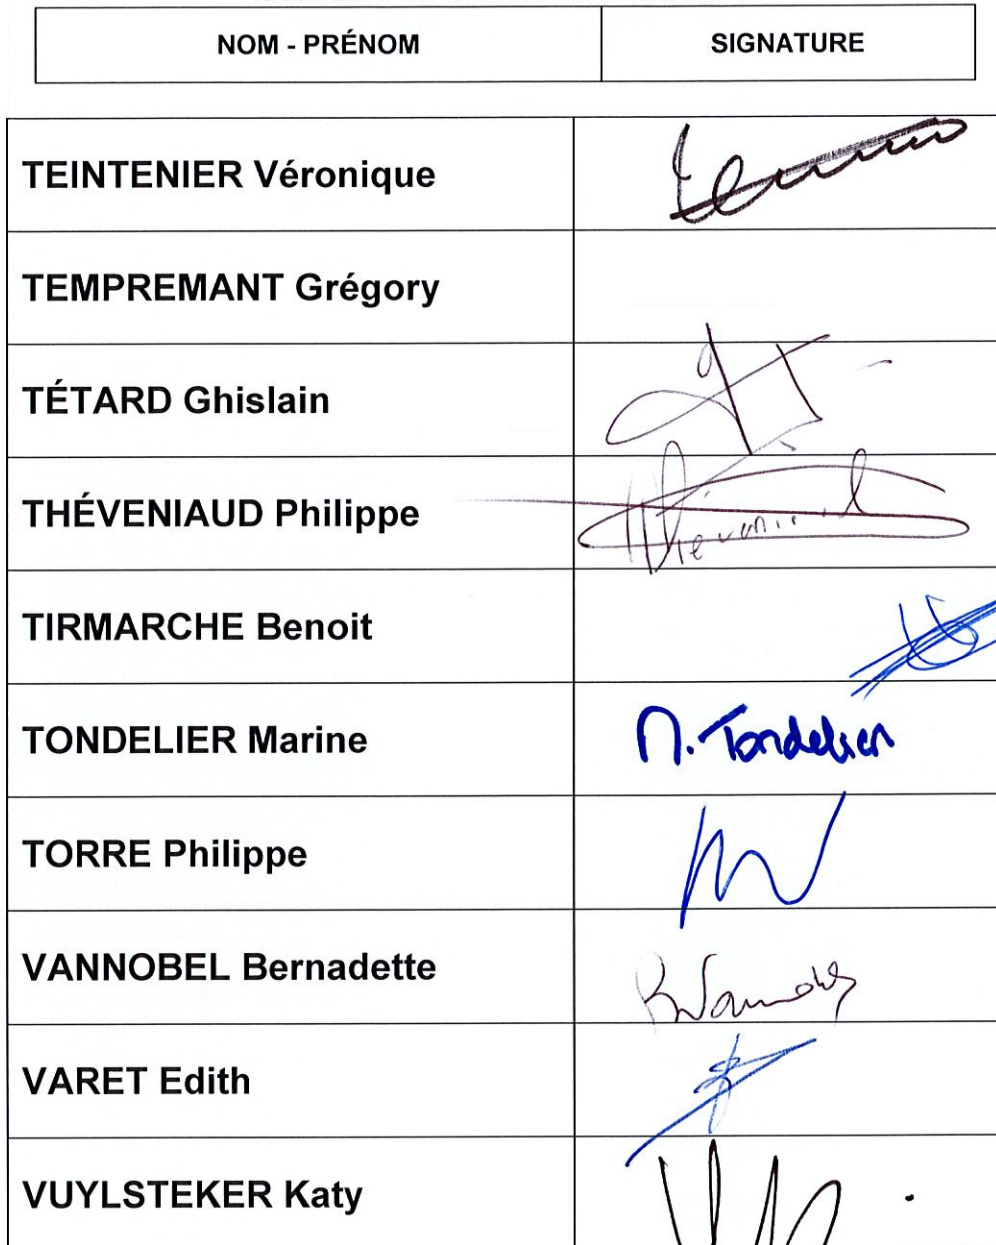 NOM - PRÉNOM SIGNATURE
TEINTENIER Véronique
TEMPREMANT Grégory
TÉTARD Ghislain
THÉVENIAUD Philippe
TIRMARCHE Benoit
TONDELIER Marine M. Tondelier
TORRE Philippe
VANNOBEL Bernadette
VARET Edith
VUYLSTEKER Katy